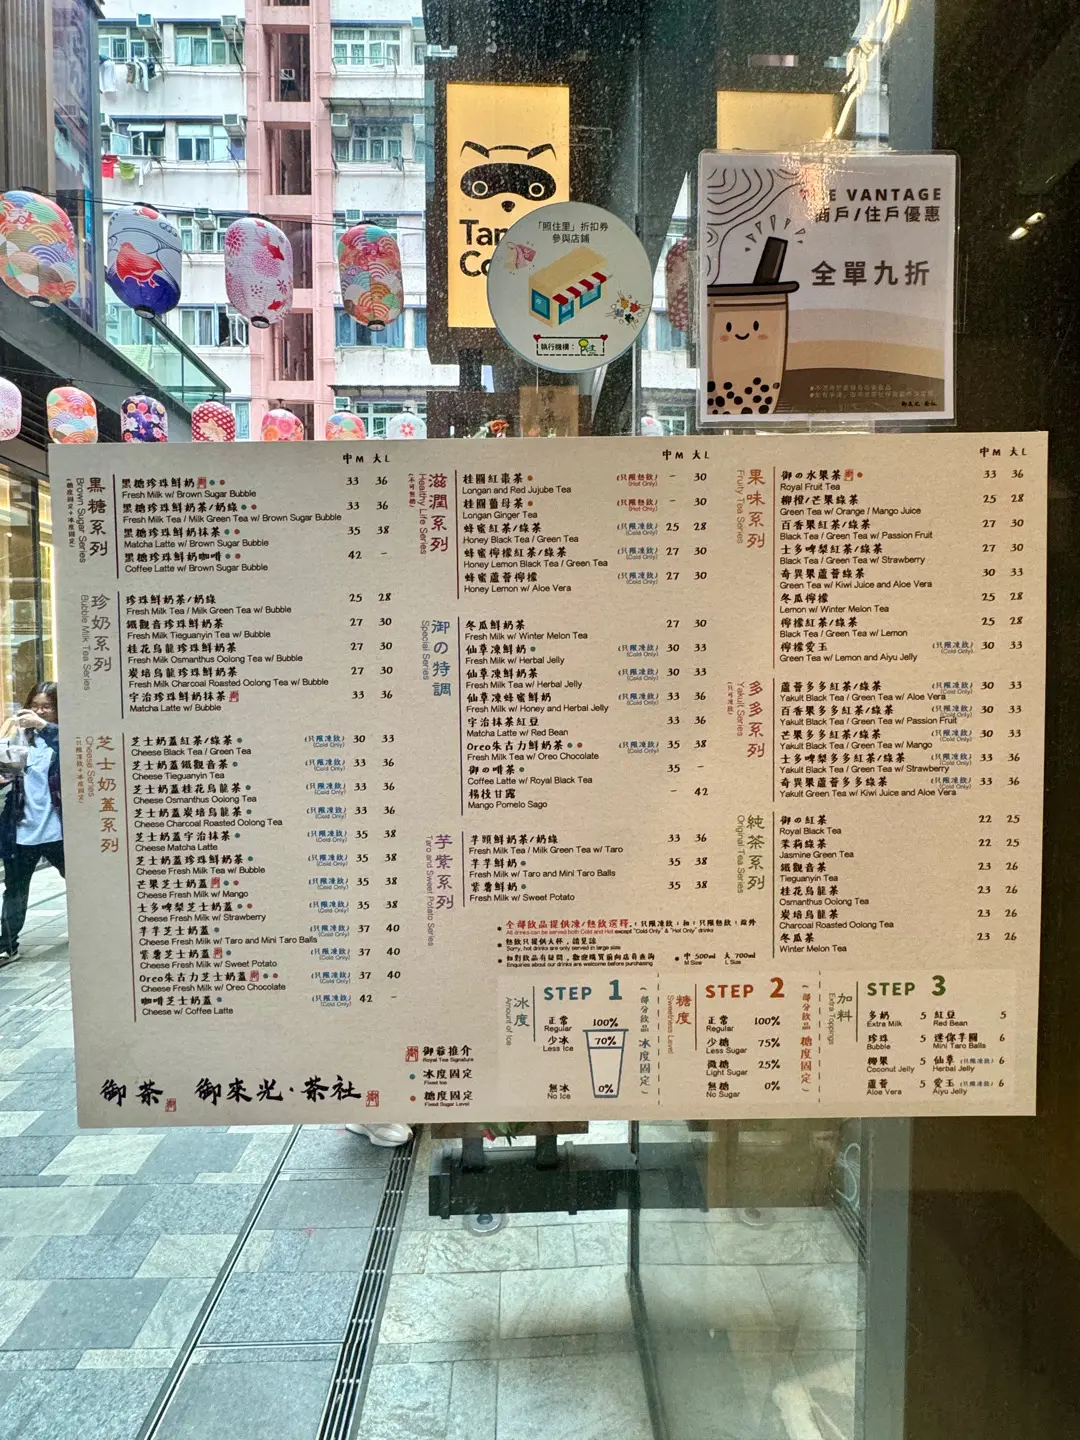 Tan
Co
「照住里」折扣券
參與店鋪
執行機構：
THE VANTAGE
商戶/住戶優惠
全單九折
中M 大L
黑糖系列
Brown Sugar Series
(糖度固定+冰度固定)
黑糖珍珠鮮奶 33 36
Fresh Milk w/ Brown Sugar Bubble
黑糖珍珠鮮奶茶/奶綠 33 36
Fresh Milk Tea / Milk Green Tea w/ Brown Sugar Bubble
黑糖珍珠鮮奶抹茶 35 38
Matcha Latte w/ Brown Sugar Bubble
黑糖珍珠鮮奶咖啡 42 –
Coffee Latte w/ Brown Sugar Bubble
珍奶系列
Bubble Milk Tea Series
珍珠鮮奶茶/奶綠 25 28
Fresh Milk Tea / Milk Green Tea w/ Bubble
鐵觀音珍珠鮮奶茶 27 30
Fresh Milk Tieguanyin Tea w/ Bubble
桂花烏龍珍珠鮮奶茶 27 30
Fresh Milk Osmanthus Oolong Tea w/ Bubble
炭培烏龍珍珠鮮奶茶 27 30
Fresh Milk Charcoal Roasted Oolong Tea w/ Bubble
宇治珍珠鮮奶抹茶 33 36
Matcha Latte w/ Bubble
芝士奶蓋系列
Cheese Series
(只限凍飲+冰度固定)
芝士奶蓋紅茶/綠茶 (只限凍飲) 30 33
Cheese Black Tea / Green Tea (Cold Only)
芝士奶蓋鐵觀音茶 (只限凍飲) 33 36
Cheese Tieguanyin Tea (Cold Only)
芝士奶蓋桂花烏龍茶 (只限凍飲) 33 36
Cheese Osmanthus Oolong Tea (Cold Only)
芝士奶蓋炭培烏龍茶 (只限凍飲) 33 36
Cheese Charcoal Roasted Oolong Tea (Cold Only)
芝士奶蓋宇治抹茶 (只限凍飲) 35 38
Cheese Matcha Latte (Cold Only)
芝士奶蓋珍珠鮮奶茶 (只限凍飲) 35 38
Cheese Fresh Milk Tea w/ Bubble (Cold Only)
芒果芝士奶蓋 (只限凍飲) 35 38
Cheese Fresh Milk w/ Mango (Cold Only)
士多啤梨芝士奶蓋 (只限凍飲) 35 38
Cheese Fresh Milk w/ Strawberry (Cold Only)
芋芋芝士奶蓋 (只限凍飲) 37 40
Cheese Fresh Milk w/ Taro and Mini Taro Balls (Cold Only)
紫薯芝士奶蓋 (只限凍飲) 37 40
Cheese Fresh Milk w/ Sweet Potato (Cold Only)
Oreo朱古力芝士奶蓋 (只限凍飲) 37 40
Cheese Fresh Milk w/ Oreo Chocolate (Cold Only)
咖啡芝士奶蓋 (只限凍飲) 42 –
Cheese w/ Coffee Latte (Cold Only)
御茶 御來光·茶社
御茶推介
Royal Tea Signature
冰度固定
Fixed Ice
糖度固定
Fixed Sugar Level
中M 大L
滋潤系列
Healthy Life Series
(不可無糖)
桂圓紅棗茶 (只限熱飲) – 30
Longan and Red Jujube Tea (Hot Only)
桂圓薑母茶 (只限熱飲) – 30
Longan Ginger Tea (Hot Only)
蜂蜜紅茶/綠茶 (只限凍飲) 25 28
Honey Black Tea / Green Tea (Cold Only)
蜂蜜檸檬紅茶/綠茶 (只限凍飲) 27 30
Honey Lemon Black Tea / Green Tea (Cold Only)
蜂蜜蘆薈檸檬 (只限凍飲) 27 30
Honey Lemon w/ Aloe Vera (Cold Only)
御の特調
Special Series
冬瓜鮮奶茶 27 30
Fresh Milk w/ Winter Melon Tea
仙草凍鮮奶 (只限凍飲) 30 33
Fresh Milk w/ Herbal Jelly (Cold Only)
仙草凍鮮奶茶 (只限凍飲) 30 33
Fresh Milk Tea w/ Herbal Jelly (Cold Only)
仙草凍蜂蜜鮮奶 (只限凍飲) 33 36
Fresh Milk w/ Honey and Herbal Jelly (Cold Only)
宇治抹茶紅豆 33 36
Matcha Latte w/ Red Bean
Oreo朱古力鮮奶茶 (只限凍飲) 35 38
Fresh Milk Tea w/ Oreo Chocolate (Cold Only)
御の啡茶 35 –
Coffee Latte w/ Royal Black Tea
楊枝甘露 – 42
Mango Pomelo Sago
芋紫系列
Taro and Sweet Potato Series
芋頭鮮奶茶/奶綠 33 36
Fresh Milk Tea / Milk Green Tea w/ Taro
芋芋鮮奶 35 38
Fresh Milk w/ Taro and Mini Taro Balls
紫薯鮮奶 35 38
Fresh Milk w/ Sweet Potato
全部飲品提供凍/熱飲選擇，「只限凍飲」和「只限熱飲」除外
All drinks can be served both Cold and Hot except "Cold Only" & "Hot Only" drinks
熱飲只提供大杯，請見諒
Sorry, hot drinks are only served in large size
如對飲品有疑問，歡迎購買前向店員查詢
Enquiries about our drinks are welcome before purchasing
中 500ml 大 700ml
M Size L Size
中M 大L
果味系列
Fruity Tea Series
御の水果茶 33 36
Royal Fruit Tea
柳橙/芒果綠茶 25 28
Green Tea w/ Orange / Mango Juice
百香果紅茶/綠茶 27 30
Black Tea / Green Tea w/ Passion Fruit
士多啤梨紅茶/綠茶 27 30
Black Tea / Green Tea w/ Strawberry
奇異果蘆薈綠茶 30 33
Green Tea w/ Kiwi Juice and Aloe Vera
冬瓜檸檬 25 28
Lemon w/ Winter Melon Tea
檸檬紅茶/綠茶 25 28
Black Tea / Green Tea w/ Lemon
檸檬愛玉 (只限凍飲) 30 33
Green Tea w/ Lemon and Aiyu Jelly (Cold Only)
多多系列
Yakult Series
(只可凍飲)
蘆薈多多紅茶/綠茶 (只限凍飲) 30 33
Yakult Black Tea / Green Tea w/ Aloe Vera (Cold Only)
百香果多多紅茶/綠茶 (只限凍飲) 30 33
Yakult Black Tea / Green Tea w/ Passion Fruit (Cold Only)
芒果多多紅茶/綠茶 (只限凍飲) 33 36
Yakult Black Tea / Green Tea w/ Mango (Cold Only)
士多啤梨多多紅茶/綠茶 (只限凍飲) 33 36
Yakult Black Tea / Green Tea w/ Strawberry (Cold Only)
奇異果蘆薈多多綠茶 (只限凍飲) 33 36
Yakult Green Tea w/ Kiwi Juice and Aloe Vera (Cold Only)
純茶系列
Original Tea Series
御の紅茶 22 25
Royal Black Tea
茉莉綠茶 22 25
Jasmine Green Tea
鐵觀音茶 23 26
Tieguanyin Tea
桂花烏龍茶 23 26
Osmanthus Oolong Tea
炭培烏龍茶 23 26
Charcoal Roasted Oolong Tea
冬瓜茶 23 26
Winter Melon Tea
冰度
Amount of Ice
STEP 1
正常 100%
Regular
少冰 70%
Less Ice
無冰 0%
No Ice
(部分飲品冰度固定)
糖度
Sweetness Level
STEP 2
正常 100%
Regular
少糖 75%
Less Sugar
微糖 25%
Light Sugar
無糖 0%
No Sugar
(部分飲品糖度固定)
加料
Extra Toppings
STEP 3
多奶 5 紅豆 5
Extra Milk Red Bean
珍珠 5 迷你芋圓 6
Bubble Mini Taro Balls
椰果 5 仙草 (只限凍飲) 6
Coconut Jelly Herbal Jelly
蘆薈 5 愛玉 (只限凍飲) 6
Aloe Vera Aiyu Jelly